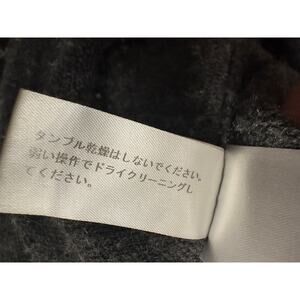 タンブル乾燥はしないでください。
弱い操作でドライクリーニングし
てください。